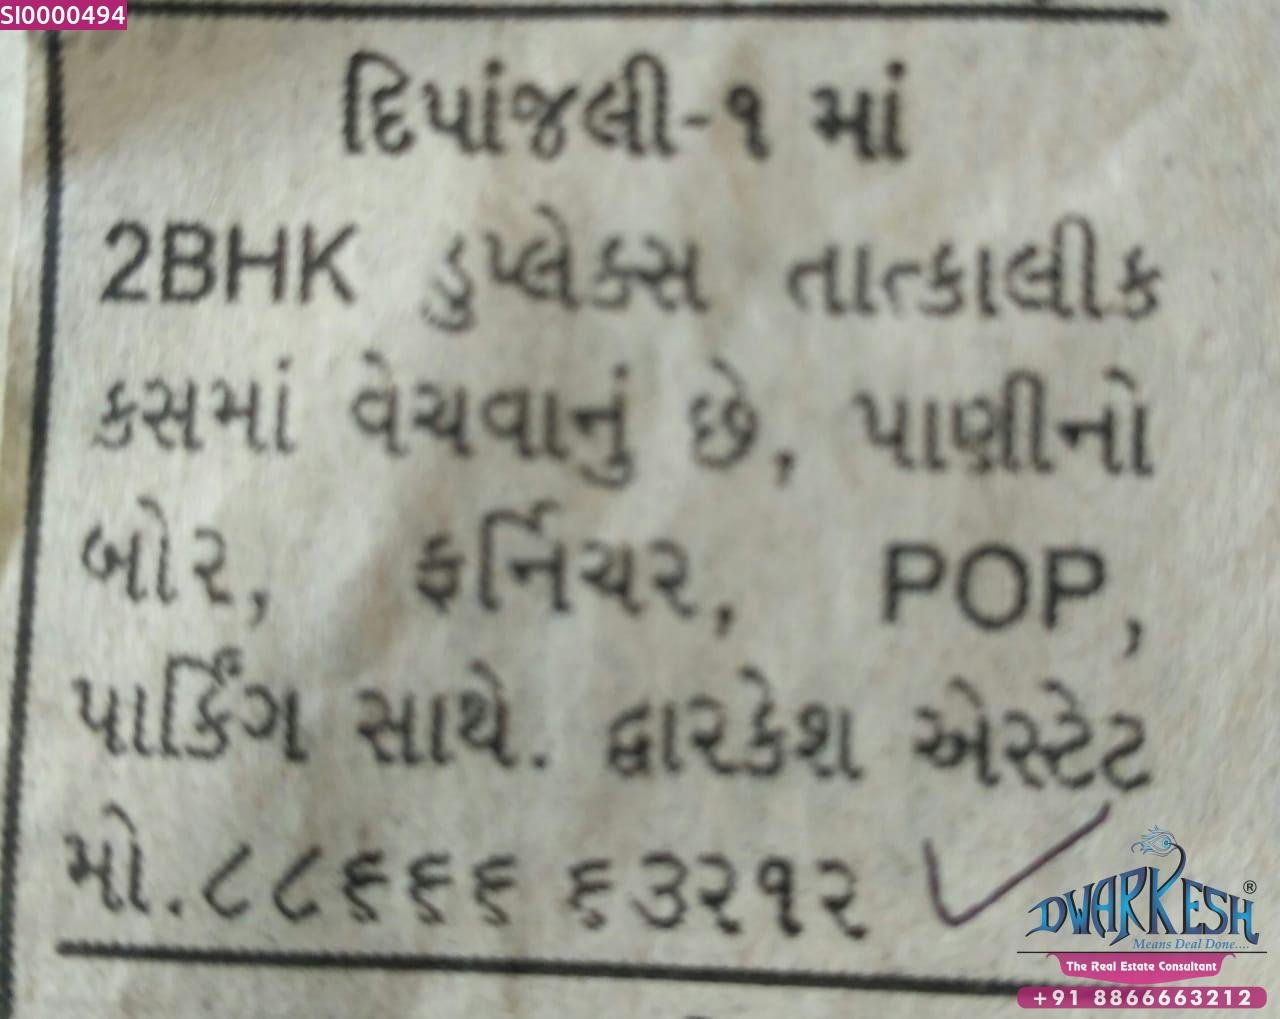 SI0000494
દિપાંજલી-૧ માં
2BHK ડુપ્લેક્સ તાત્કાલીક
કસમાં વેચવાનું છે, પાણીનો
બોર, ફર્નિચર, POP,
પાર્કિંગ સાથે. દ્વારકેશ એસ્ટેટ
મો.૮૮૬૬૬ ૬૩૨૧૨
DWARKESH®
Means Deal Done....
The Real Estate Consultant
+91 8866663212